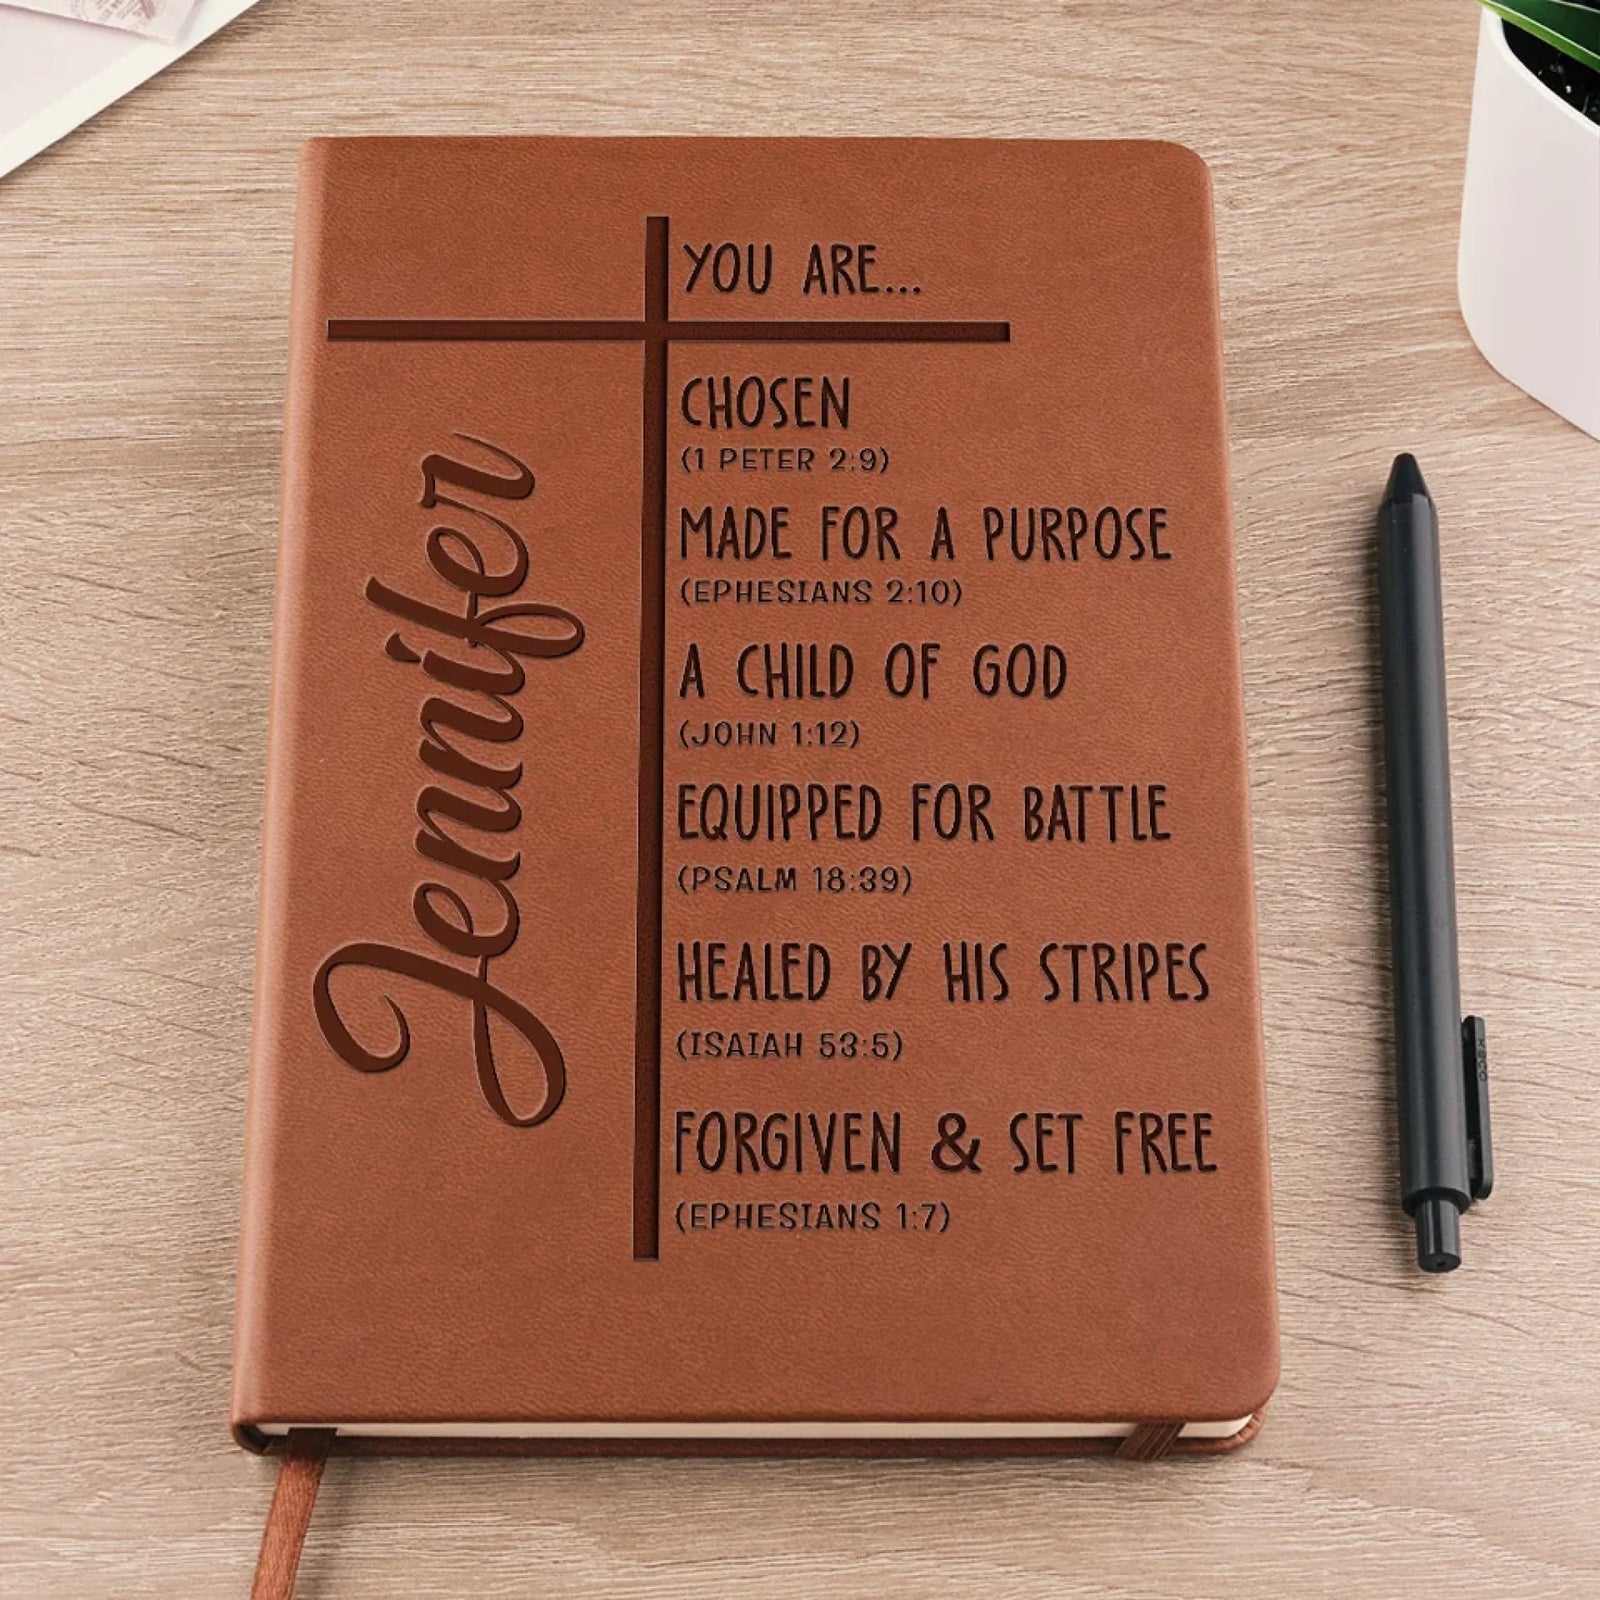 Jennifer
YOU ARE...
CHOSEN
(1 PETER 2:9)
MADE FOR A PURPOSE
(EPHESIANS 2:10)
A CHILD OF GOD
(JOHN 1:12)
EQUIPPED FOR BATTLE
(PSALM 18:39)
HEALED BY HIS STRIPES
(ISAIAH 53:5)
FORGIVEN & SET FREE
(EPHESIANS 1:7)
KACO